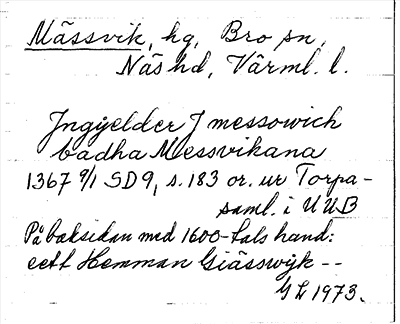 Mässvik, hg, Bro sn,
Näs hd, Värml. l.
Jngyelder J messowich
badha Messvikana
1367 9/1 SD9, s. 183 or. ur Torpa-
saml. i UUB
På baksidan med 1600-tals hand:
eett Hemman Giässwijk --
GL 1973.